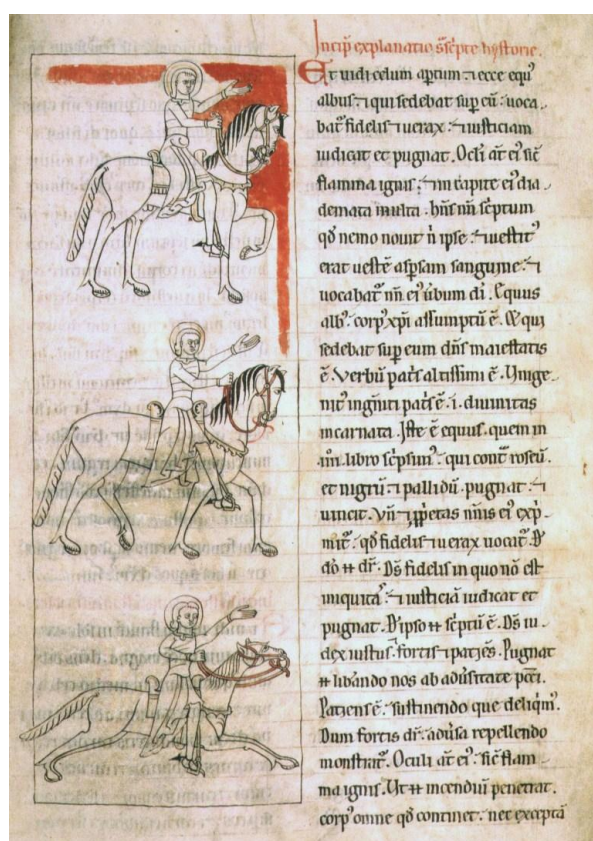 Incip explanatio sscpte hystorie.
Et uidi celum aptum ⁊ ecce equ᷒
albus. ⁊ qui sedebat sup eū. uoca-
bat᷑ fidelis ⁊ uerax. ⁊ iusticiam
iudicat et pugnat. Ocli at̄ ei᷒ sic̄
flamma ignis. ⁊ in capite ei᷒ dia
demata multa. hn̄s nn̄ sc̄ptum
qd̄ nemo nouit n̄ ipse. ⁊ uestit᷒
erat ueste aspsam sanguine. ⁊
uocabat᷑ nn̄ ei᷒ ūbum dī. Equus
alb᷒. corp᷒ xp̄i assumptū ē. Et qui
sedebat sup eum dn̄s maiestatis
ē. Verbū pat͛s altissimi ē. Vnige-
nit᷒ ingn̄iti pat͛s ē. i. diuinitas
incarnata. Iste ē equus. quem in
libro sc̄psim᷒. qui cont͛ roseū.
et nigrū ⁊ pallidū. pugnat. ⁊
uincit. Vn̄ ⁊ ppetas nn̄is ei᷒ exp-
mit᷑. qd̄ fidelis ⁊ uerax uocat᷑. D̄
dō ħ dr̄. Ds̄ fidelis in quo nō est
iniquita᷒. ⁊ iusticiā iudicat et
pugnat. D̄ ipso ħ sc̄ptū ē. Ds̄ iu-
dex iustus. fortis ⁊ patiēs. Pugnat
ħ libando nos ab adūsitate pcc̄i.
Patiens ē. sustinendo que delinqm᷒.
Dum fortis dr̄. adūsa repellendo
monstrat᷑. Oculi at̄ ei᷒. sic̄ flam-
ma ignis. Vt ħ incendiū penetrat.
corp᷒ omne qd̄ continet. nec excepta